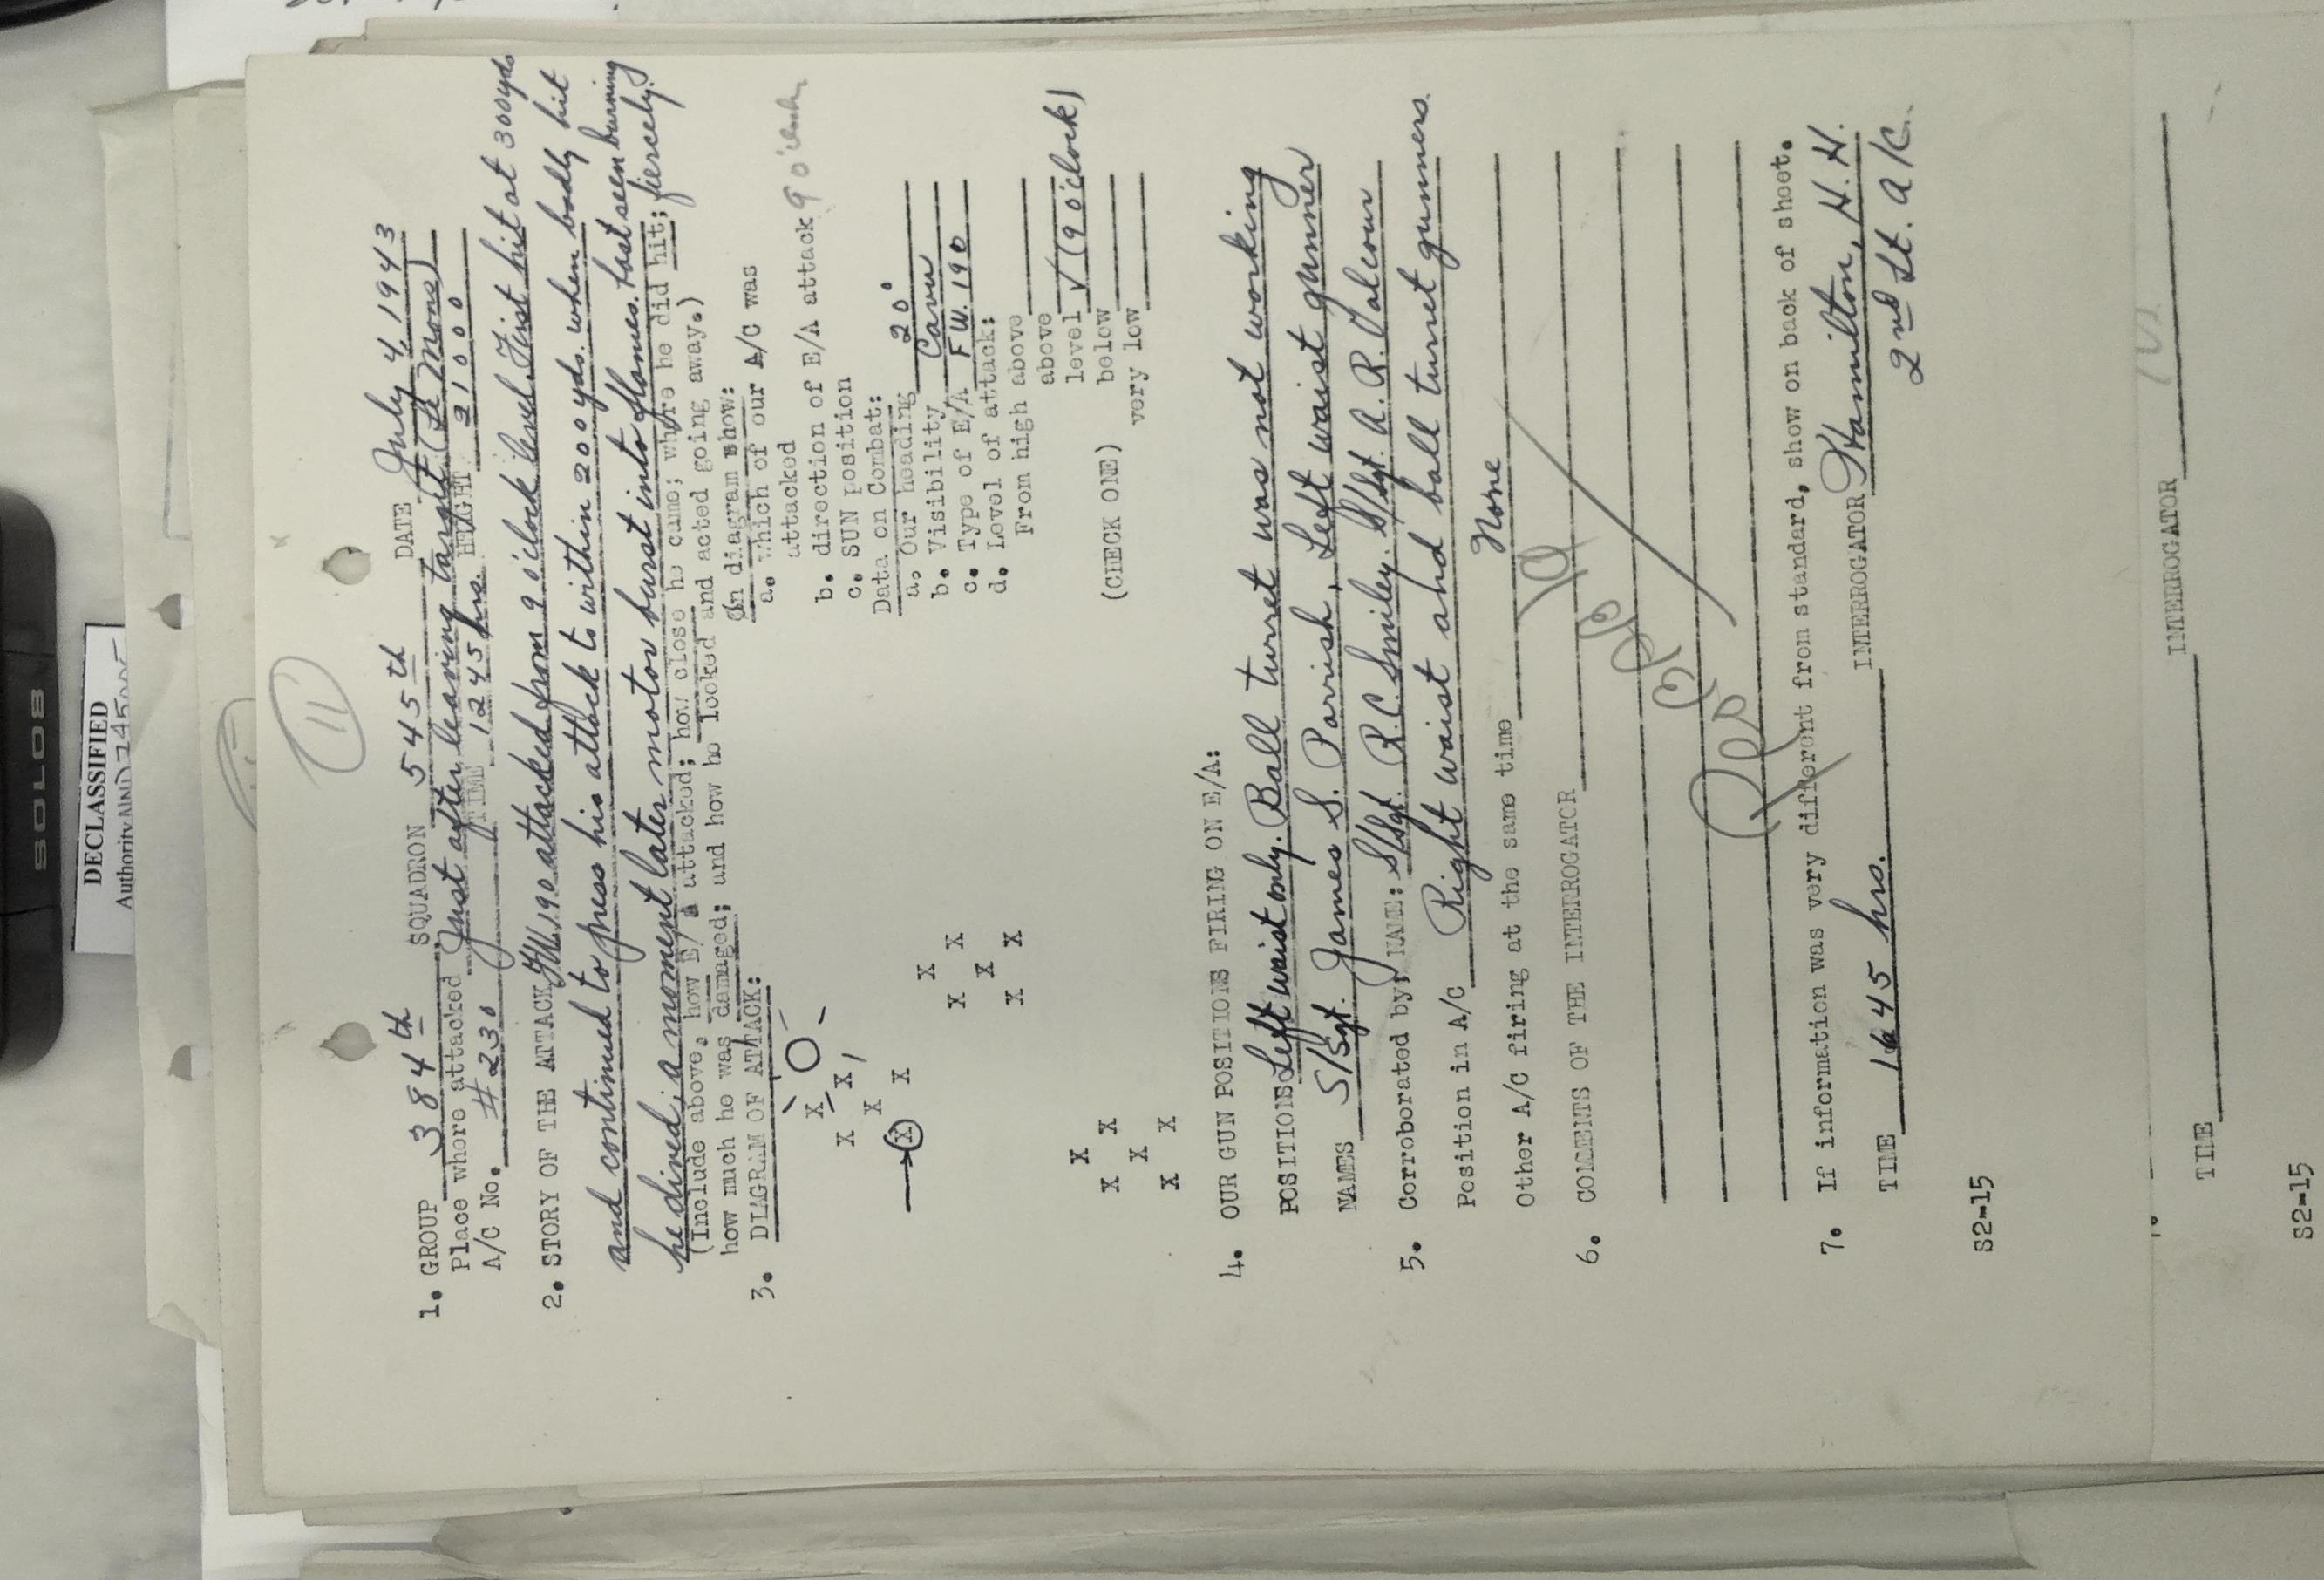 SOLO8
DECLASSIFIED
Authority NND 745005
11
1. GROUP 384th SQUADRON 545th DATE July 4, 1943
Place where attacked Just after leaving target (Le Mans)
A/C No. #230 TIME 1245 hrs. HEIGHT 21000
2. STORY OF THE ATTACK FW.190 attacked from 9 o'clock level. First hit at 300yds
and continued to press his attack to within 200 yds. when badly hit
he dived; a moment later motor burst into flames. Last seen burning
fiercely.
(Include above, how E/A attacked; how close he came; where he did hit;
how much he was damaged; and how he looked and acted going away.)
3. DIAGRAM OF ATTACK:
On diagram show:
a. which of our A/C was
attacked
b. direction of E/A attack 9 o'clock
c. SUN position
Data on Combat:
a. Our heading 20°
b. Visibility Cavu
c. Type of E/A F.W. 190
d. Level of attack:
From high above
above
level √ (9 o'clock)
below
very low
(CHECK ONE)
X X
X X X
X X
X X
X X
X X
X X
X X
X X
4. OUR GUN POSITIONS FIRING ON E/A:
POSITIONS Left waist only. Ball turret was not working
NAMES S/Sgt. James S. Parrish, Left waist gunner
5. Corroborated by; NAME: S/Sgt. R.C. Smiley. S/Sgt. A.R. Falcour
Position in A/C Right waist and ball turret gunners.
Other A/C firing at the same time None
6. COMMENTS OF THE INTERROGATOR
7. If information was very different from standard, show on back of sheet.
TIME 1645 hrs. INTERROGATOR Hamilton, H.H.
2nd Lt. A.C.
S2-15
TIME INTERROGATOR
S2-15